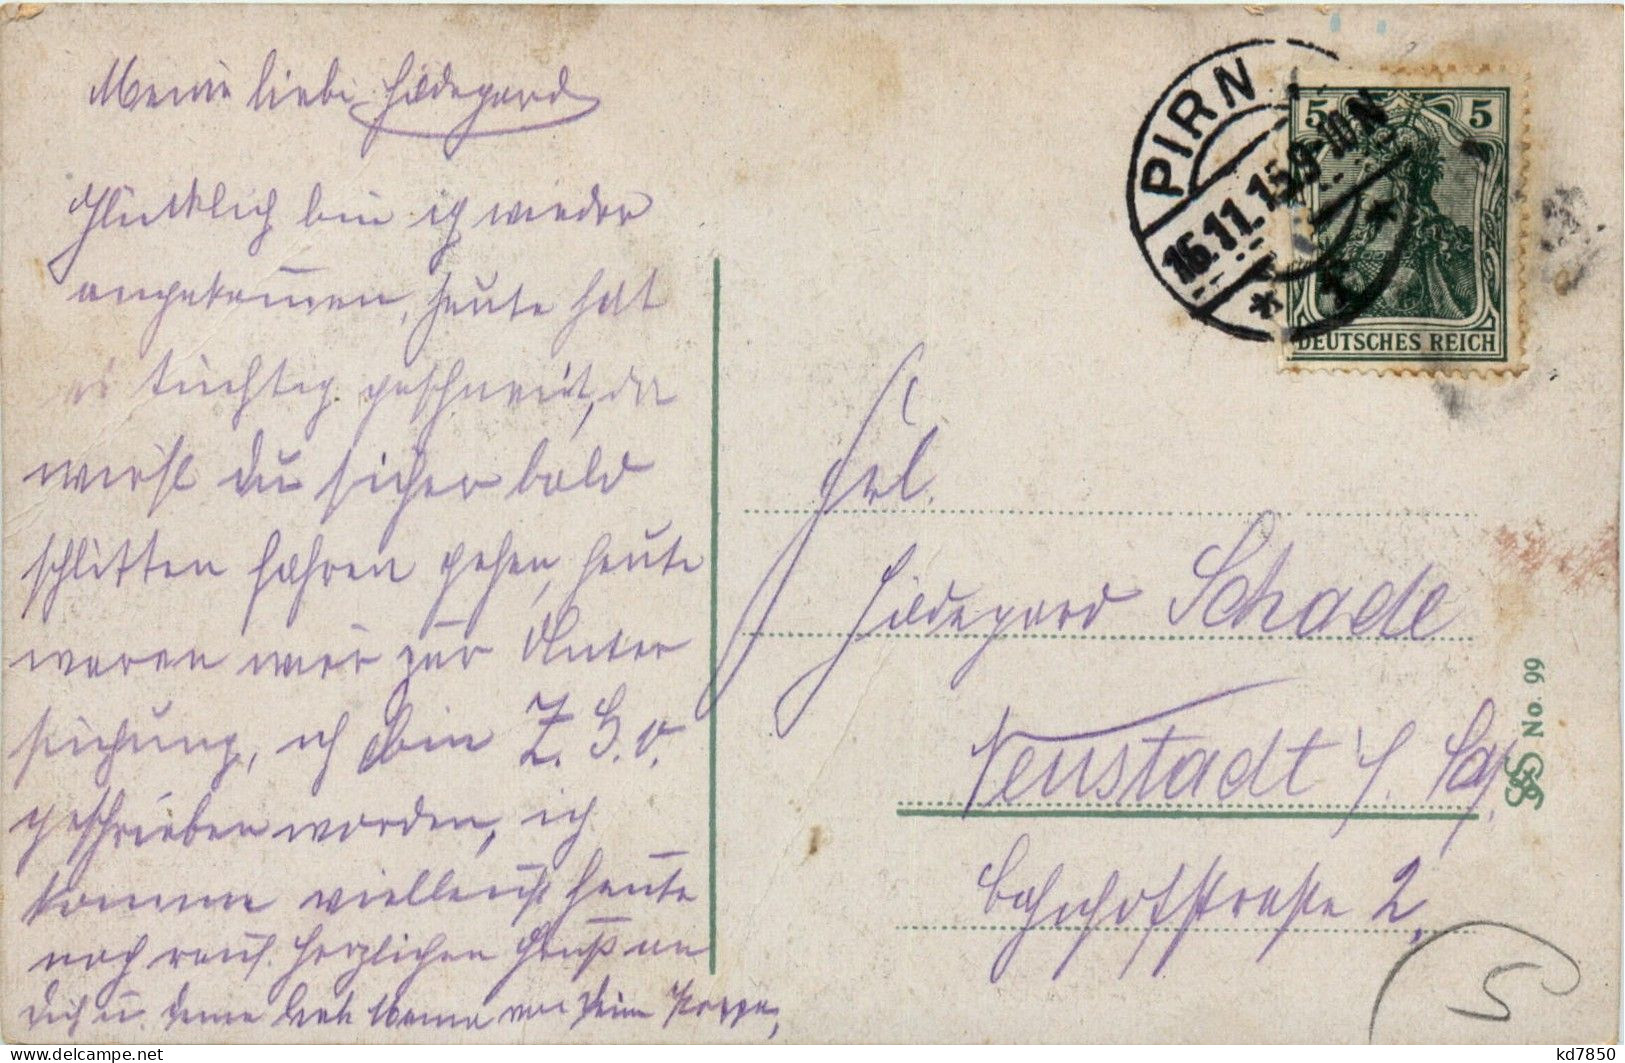 Meine liebe Hildegard
Glücklich bin ich wieder
angekommen, heute hat
es tüchtig geschneit, da
wirst du sicher bald
schlitten fahren gehen, heute
waren wir zur Unter
suchung, ich bin Z. G. v.
geschrieben worden, ich
komme vielleicht heute
noch raus. Herzlichen Gruß an
Dich u. deine lieb Mama von Deim Pappa,
PIRN
16.11.15.9-10N
* f *
5 5
DEUTSCHES REICH
Frl.
Hildegard Schade
Neustadt i/ Sa/.
Bahnhofstraße 2,
No. 99
5
kd7850